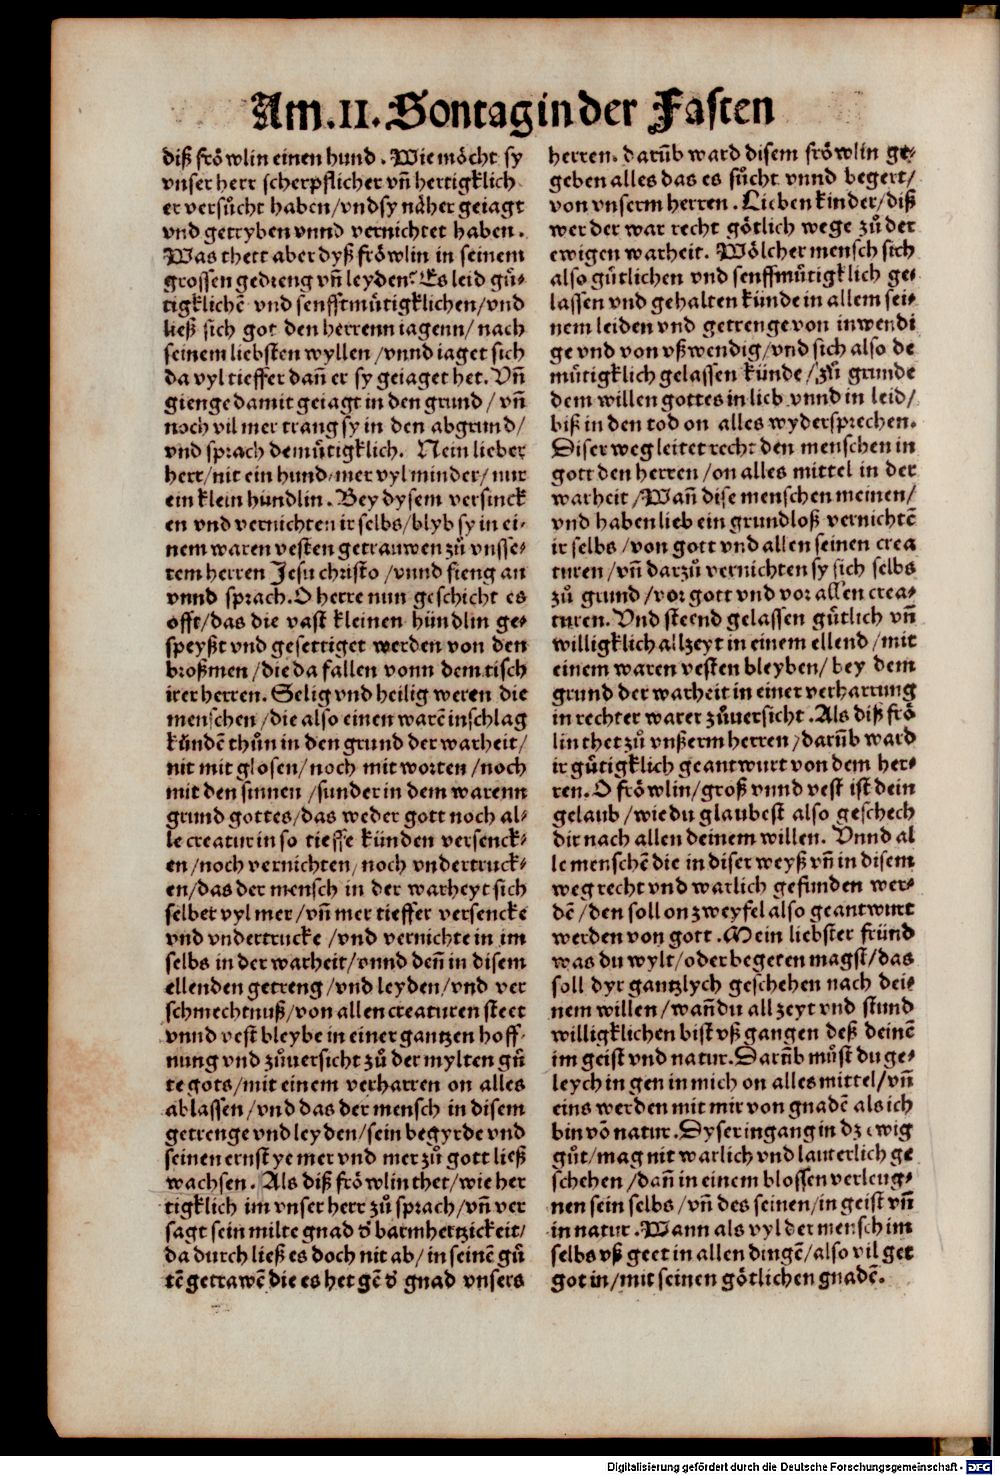 Am.II.Sontag in der Fasten
diß frőwlin einen hund. Wie mőcht sy
vnser herr scherpflicher vñ hertigklich
er versůcht haben/vnd sy nåher geiagt
vnd getryben vnnd vernichtet haben.
Was thett aber dyß frőwlin in seinem
grossen gedreng vñ leyden? Es leid gů-
tigklichē vnd senfftmůtigklichen/vnd
ließ sich got den herrenn iagenn/nach
seinem liebsten wyllen/vnnd iaget sich
da vyl tieffer dañ er sy geiaget het. Vñ
gienge damit geiagt in den grund/vñ
noch vil mer trang sy in den abgrund/
vnd sprach demůtigklich. Nein lieber
herr/nit ein hund/mer vyl minder/nur
ein klein hündlin. Bey dysem versinck
en vnd vernichten ir selbs/blyb sy in ei-
nem waren vesten getrauwen zů vnsse-
rem herren Jesu christo/vnnd fieng an
vnnd sprach. O herre nun geschicht es
offt/das die vast kleinen hündlin ge-
speyßt vnd gesettiget werden von den
broßmen/die da fallen vonn dem tisch
irer herren. Selig vnd heilig weren die
menschen/die also einen warē inschlag
kündē thůn in den grund der warheit/
nit mit glosen/noch mit worten/noch
mit den sinnen/sunder in dem warenn
grund gottes/das weder gott noch al-
le creatur in so tieffe künden versenck-
en/noch vernichten/noch vndertruck-
en/das der mensch in der warheyt sich
selber vyl mer/vñ mer tieffer versencke
vnd vndertrucke/vnd vernichte in im
selbs in der warheit/vnnd deñ in disem
ellenden getreng/vnd leyden/vnd ver
schmechtnuß/von allen creaturen steet
vnnd vest bleybe in einer gantzen hoff-
nung vnd zůuersicht zů der mylten gů
te gots/mit einem verharren on alles
ablassen/vnd das der mensch in disem
getrenge vnd leyden/sein begyrde vnd
seinen ernst ye mer vnd mer zů gott ließ
wachsen. Als diß frőwlin thet/wie her
tigklich im vnser herr zů sprach/vñ ver
sagt sein milte gnad vň barmhertzickeit/
da durch ließ es doch nit ab/in seinē gů
tē getrawē die es het gē d' gnad vnsers
herren. darūb ward disem frőwlin ge-
geben alles das es sůcht vnnd begert/
von vnserm herren. Lieben kinder/diß
wer der war recht gőtlich wege zů der
ewigen warheit. Wőlcher mensch sich
also gůtlichen vnd senffmůtigklich ge-
lassen vnd gehalten künde in allem sei-
nem leiden vnd getrenge von inwendi
ge vnd von vßwendig/vnd sich also de
můtigklich gelassen künde/zů grunde
dem willen gottes in lieb vnnd in leid/
biß in den tod on alles wydersprechen.
Diser weg leitet recht den menschen in
gott den herren/on alles mittel in der
warheit/Wañ dise menschen meinen/
vnd haben lieb ein grundloß vernichtē
ir selbs/von gott vnd allen seinen crea
turen/vñ darzů vernichten sy sich selbs
zů grund/vor gott vnd vor allen crea-
turen. Vnd steend gelassen gůtlich vñ
willigklich allzeyt in einem ellend/mit
einem waren vesten bleyben/bey dem
grund der warheit in einer verharrung
in rechter warer zůuersicht. Als diß frő
lin thet zů vnßerm herren/darūb ward
ir gůtigklich geantwurt von dem her-
ren. O frőwlin/groß vnnd vest ist dein
gelaub/wie du glaubest also geschech
dir nach allen deinem willen. Vnnd al
le menschē die in diser weyß vñ in disem
weg recht vnd warlich gefunden wer-
dē/den soll on zweyfel also geantwurt
werden von gott. Mein liebster fründ
was du wylt/oder begeren magst/das
soll dyr gantzlych geschehen nach dei-
nem willen/wañ du all zeyt vnd stund
willigklichen bist vß gangen deß deinē
im geist vnd natur. Darūb můst du ge-
leych in gen in mich on alles mittel/vñ
eins werden mit mir von gnadē als ich
bin vō natur. Dyser ingang in dz ewig
gůt/mag nit warlich vnd lauterlich ge
schehen/dañ in einem blossen verleug-
nen sein selbs/vñ des seinen/in geist vñ
in natur. Wann als vyl der mensch im
selbs vß geet in allen dingē/also vil get
got in/mit seinen gőtlichen gnadē.
Digitalisierung gefördert durch die Deutsche Forschungsgemeinschaft - DFG